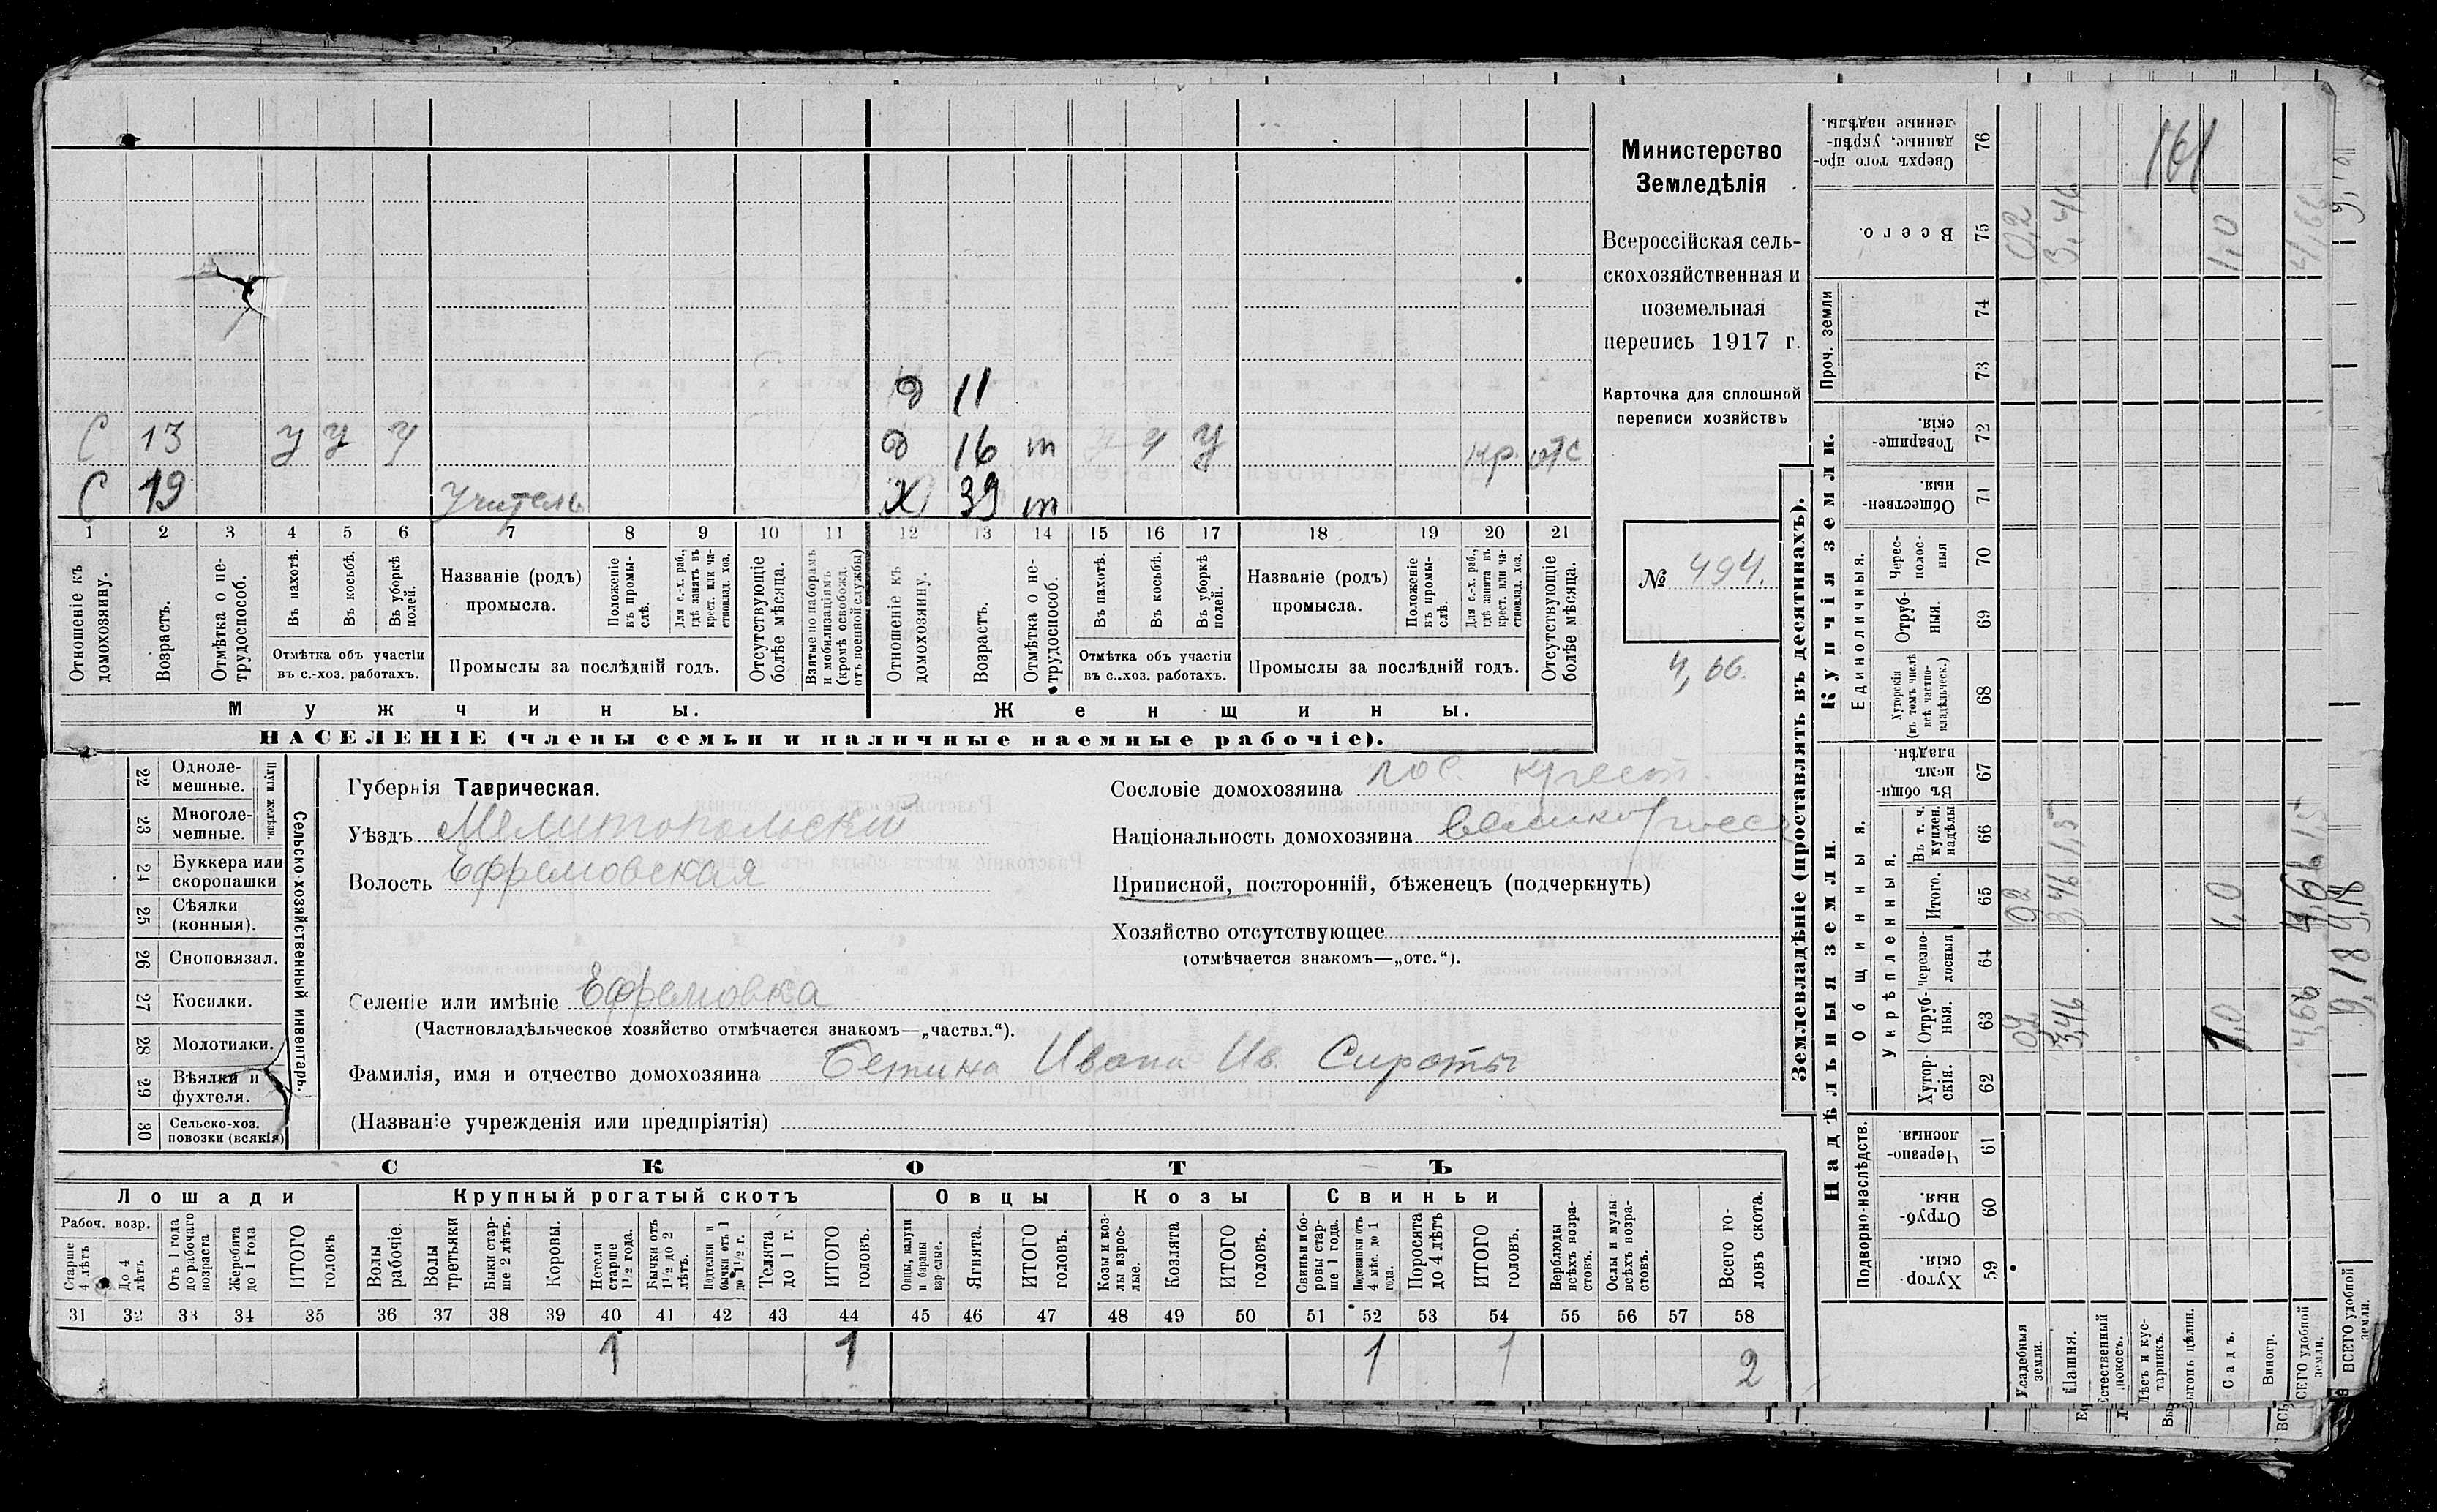 Министерство
Земледѣлія
Всероссійская сель-
скохозяйственная и
поземельная
перепись 1917 г.
Карточка для сплошной
переписи хозяйствъ
№ 494.
4,66.
11
С 13 у у у 16 т у у кр. отс
С 19 учитель 39 т
1 2 3 4 5 6 7 8 9 10 11 12 13 14 15 16 17 18 19 20 21
Отношеніе къ домохозяину.
Возрастъ.
Отмѣтка о не-трудоспособ.
Въ пахотѣ.
Въ косьбѣ.
Въ уборкѣ полей.
Отмѣтка объ участіи
въ с.-хоз. работахъ.
Названіе (родъ)
промысла.
Положеніе въ промы-слѣ.
Для с.-х. раб., гдѣ занятъ въ крест. или ча-стновлад. хоз.
Промыслы за послѣдній годъ.
Отсутствующіе болѣе мѣсяца.
Взятые по наборамъ и мобилизаціямъ (кромѣ освобожд. отъ военной службы)
Отношеніе къ домохозяину.
Возрастъ.
Отмѣтка о не-трудоспособ.
Въ пахотѣ.
Въ косьбѣ.
Въ уборкѣ полей.
Отмѣтка объ участіи
въ с..хоз. работахъ.
Названіе (родъ)
промысла.
Положеніе въ промы-слѣ.
Для с.-х. раб., гдѣ занята въ крест. или ча-стновлад. хоз.
Промыслы за послѣдній годъ.
Отсутствующіе болѣе мѣсяца.
Мужчины.
Женщины.
НАСЕЛЕНІЕ (члены семьи и наличные наемные рабочіе).
22 Одноле-мешные.
23 Многоле-мешные.
24 Буккера или скоропашки
25 Сѣялки (конныя).
26 Сноповязал.
27 Косилки.
28 Молотилки.
29 Вѣялки и фухтеля.
30 Сельско-хоз. повозки (всякія)
Сельско-хозяйственный инвентарь.
Губернія Таврическая.
Уѣздъ Мелитопольскій
Волость Ефремовская
Селеніе или имѣніе Ефремовка
(Частновладѣльческое хозяйство отмѣчается знакомъ—„частвл.“).
Фамилія, имя и отчество домохозяина Бетина Ивана Ив. Сироты
(Названіе учрежденія или предпріятія)
Сословіе домохозяина пос. крест.
Національность домохозяина великоросс
Приписной, посторонній, бѣженецъ (подчеркнуть)
Хозяйство отсутствующее
(отмѣчается знакомъ—„отс.“).
СКОТЪ
Лошади
Крупный рогатый скотъ
Овцы
Козы
Свиньи
Рабоч. возр.
Старше 4 лѣтъ
До 4 лѣтъ
Отъ 1 года до рабочаго возраста
Жеребята до 1 года
ИТОГО головъ
Волы рабочіе.
Волы третьяки
Быки стар-ше 2 лѣтъ.
Коровы.
Нетели старше 1½ года.
Бычки отъ 1½ до 2 лѣтъ.
Подтелки и бычки отъ 1 до 1½ г.
Телята до 1 г.
ИТОГО головъ.
Овцы, валухи и бараны взрослые.
Ягнята.
ИТОГО головъ.
Козы и коз-лы взрос-лые.
Козлята
ИТОГО головъ.
Свиньи и бо-ровы стар-ше 1 года.
Подсвинки отъ 4 мѣс. до 1 года.
Поросята до 4 лѣтъ
ИТОГО головъ.
Верблюды всѣхъ возра-стовъ.
Ослы и мулы всѣхъ возра-стовъ.
Всего го-ловъ скота.
31 32 33 34 35 36 37 38 39 40 41 42 43 44 45 46 47 48 49 50 51 52 53 54 55 56 57 58
1 1 1 1 2
Землевладѣніе (проставлять въ десятинахъ).
Надѣльныя земли.
Купчія земли.
Проч. земли
Подворно-наслѣдств.
Общинныя.
Укрѣпленныя.
Единоличныя.
Хутор-скія. 59
Отруб-ныя. 60
Черезпо-лосныя. 61
Хутор-скія. 62
Отруб-ныя. 63
Черезпо-лосныя 64
Итого. 65
Въ т. ч. куплен. надѣлы 66
Въ общи-номъ владѣн. 67
Хуторскія (въ томъ числѣ всѣ частно-владѣльческ.) 68
Отруб-ныя. 69
Черес-полос-ныя 70
Обществен-ныя. 71
Товарище-скія. 72
73
74
Всего. 75
Сверхъ того про-данные, укрѣп-ленные надѣлы. 76
Усадебныя земли. 0,2 0,2 0,2
Пашня. 3,46 3,46 1,5 3,46
Естественный покосъ.
Лѣсъ и кус-тарникъ.
Выгонъ цѣлин.
Садъ. 1,0 1,0 1,0
Виногр.
ВСЕГО удобной земли. 4,66 4,66 1,5 4,66
161
ВСЕГО удобной земли. 9,18 9,18